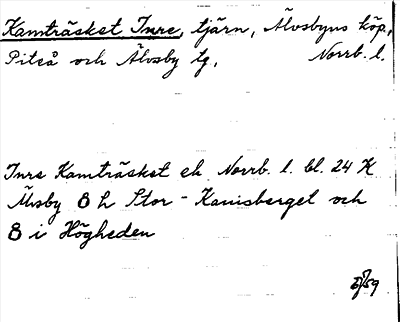 Kamträsket Inre, tjärn, Älvsbyns köp.,
Piteå och Älvsby tg, Norrb. l.
Inre Kamträsket ek Norrb. l. bl. 24 K
Älvsby 8 h Stor-Kanisberget och
8 i Högheden
59